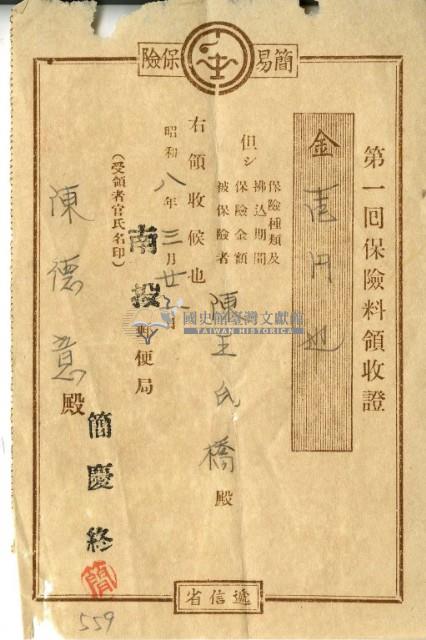 簡易
保險
第一回保險料領收證
金壹円也
但シ
保險種類及
拂込期間
保險金額
被保險者
陳王氏橋殿
右領收候也
昭和八年三月廿日
南投郵便局
(受領者官氏名印)
簡慶終
簡
陳德意殿
遞信省
559
國史館臺灣文獻館
TAIWAN HISTORICA